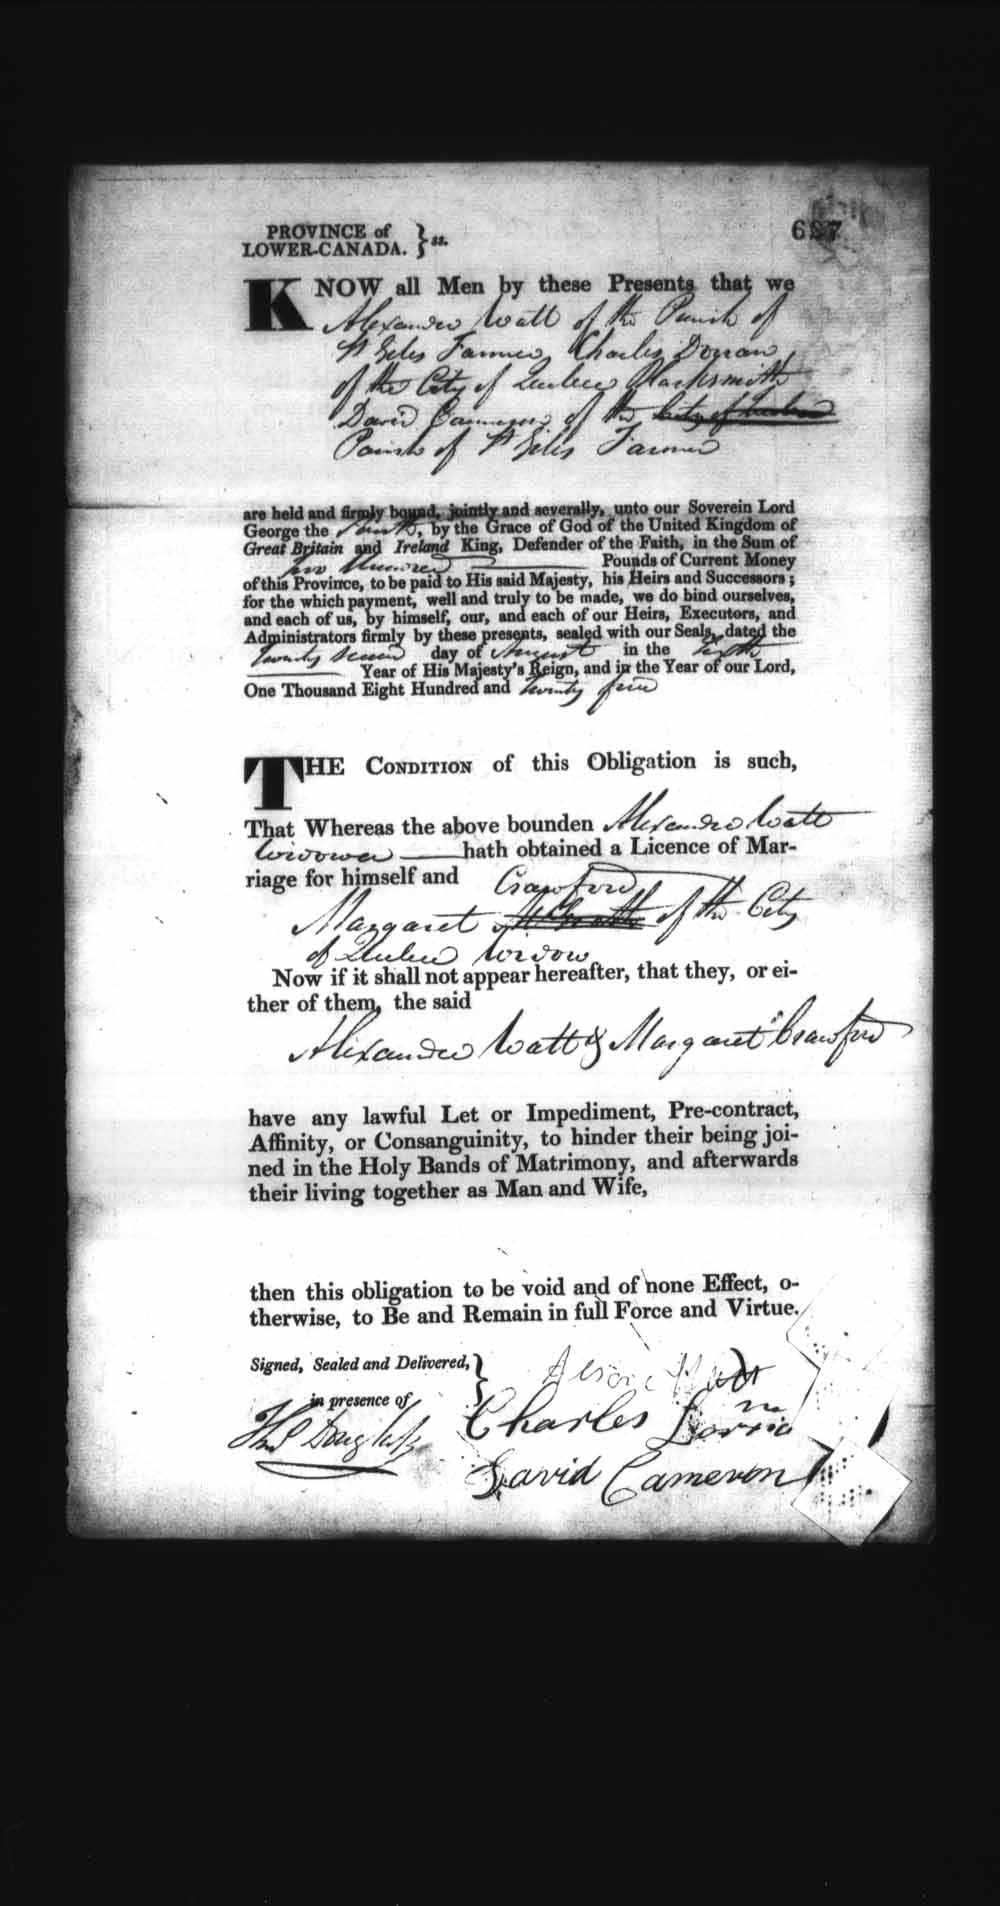 627
PROVINCE of
LOWER-CANADA. } ss.
KNOW all Men by these Presents that we
Alexander Watt of the Parish of
St Giles Farmer, Charles Dorran
of the City of Quebec Blacksmith
David Cameron of the City of Quebec
Parish of St Giles Farmer
are held and firmly bound, jointly and severally, unto our Soverein Lord
George the Fourth, by the Grace of God of the United Kingdom of
Great Britain and Ireland King, Defender of the Faith, in the Sum of
two Hundred Pounds of Current Money
of this Province, to be paid to His said Majesty, his Heirs and Successors;
for the which payment, well and truly to be made, we do bind ourselves,
and each of us, by himself, our, and each of our Heirs, Executors, and
Administrators firmly by these presents, sealed with our Seals, dated the
twenty second day of August in the sixth
Year of His Majesty's Reign, and in the Year of our Lord,
One Thousand Eight Hundred and twenty five
THE CONDITION of this Obligation is such,
That Whereas the above bounden Alexander Watt
Widower hath obtained a Licence of Mar-
riage for himself and Crawford
Margaret of the City
of Quebec Widow
Now if it shall not appear hereafter, that they, or ei-
ther of them, the said
Alexander Watt & Margaret Crawford
have any lawful Let or Impediment, Pre-contract,
Affinity, or Consanguinity, to hinder their being joi-
ned in the Holy Bands of Matrimony, and afterwards
their living together as Man and Wife,
then this obligation to be void and of none Effect, o-
therwise, to Be and Remain in full Force and Virtue.
Signed, Sealed and Delivered, }
in presence of
Charles
David Cameron